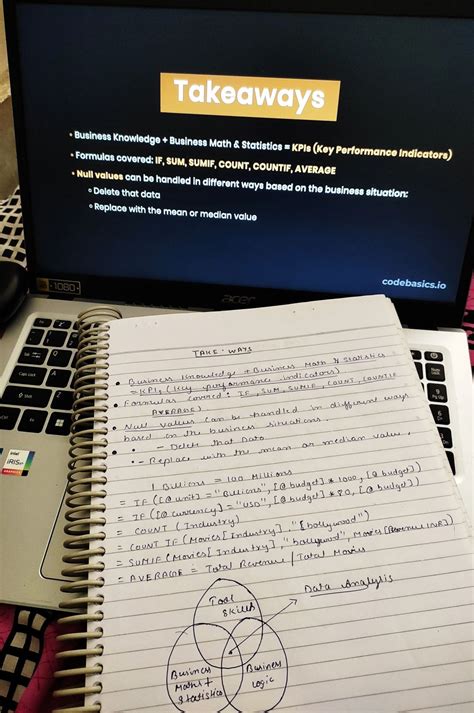 Takeaways
• Business Knowledge + Business Math & Statistics = KPIs (Key Performance Indicators)
• Formulas covered: IF, SUM, SUMIF, COUNT, COUNTIF, AVERAGE
• Null values can be handled in different ways based on the business situation:
○ Delete that data
○ Replace with the mean or median value
codebasics.io
1080
acer
intel
iRIS
TAKE-WAYS
• Business Knowledge + Business Math & Statistics
= KPIs (key performance indicators)
• Formulas covered: IF, SUM, SUMIF, COUNT, COUNTIF
AVERAGE)
• Null values can be handled in different ways
based on the business situations.
• - Delete that Data
• - Replace with the mean or median value.
1 Billions = 100 Millions
= IF ([@unit] = "Billions", [@budget] * 1000, [@budget])
= IF ([@currency] = "USD", [@budget] * 80, [@budget])
= COUNT (Industry)
= COUNT IF (Movies[Industry], "[bollywood")
= SUMIF (Movies[Industry], "bollywood", Movies[Revenue INR])
= AVERAGE = Total Revenue / Total Movies
Data Analysis
Tool
Skills
Business
Maths +
Statistics
Business
Logic